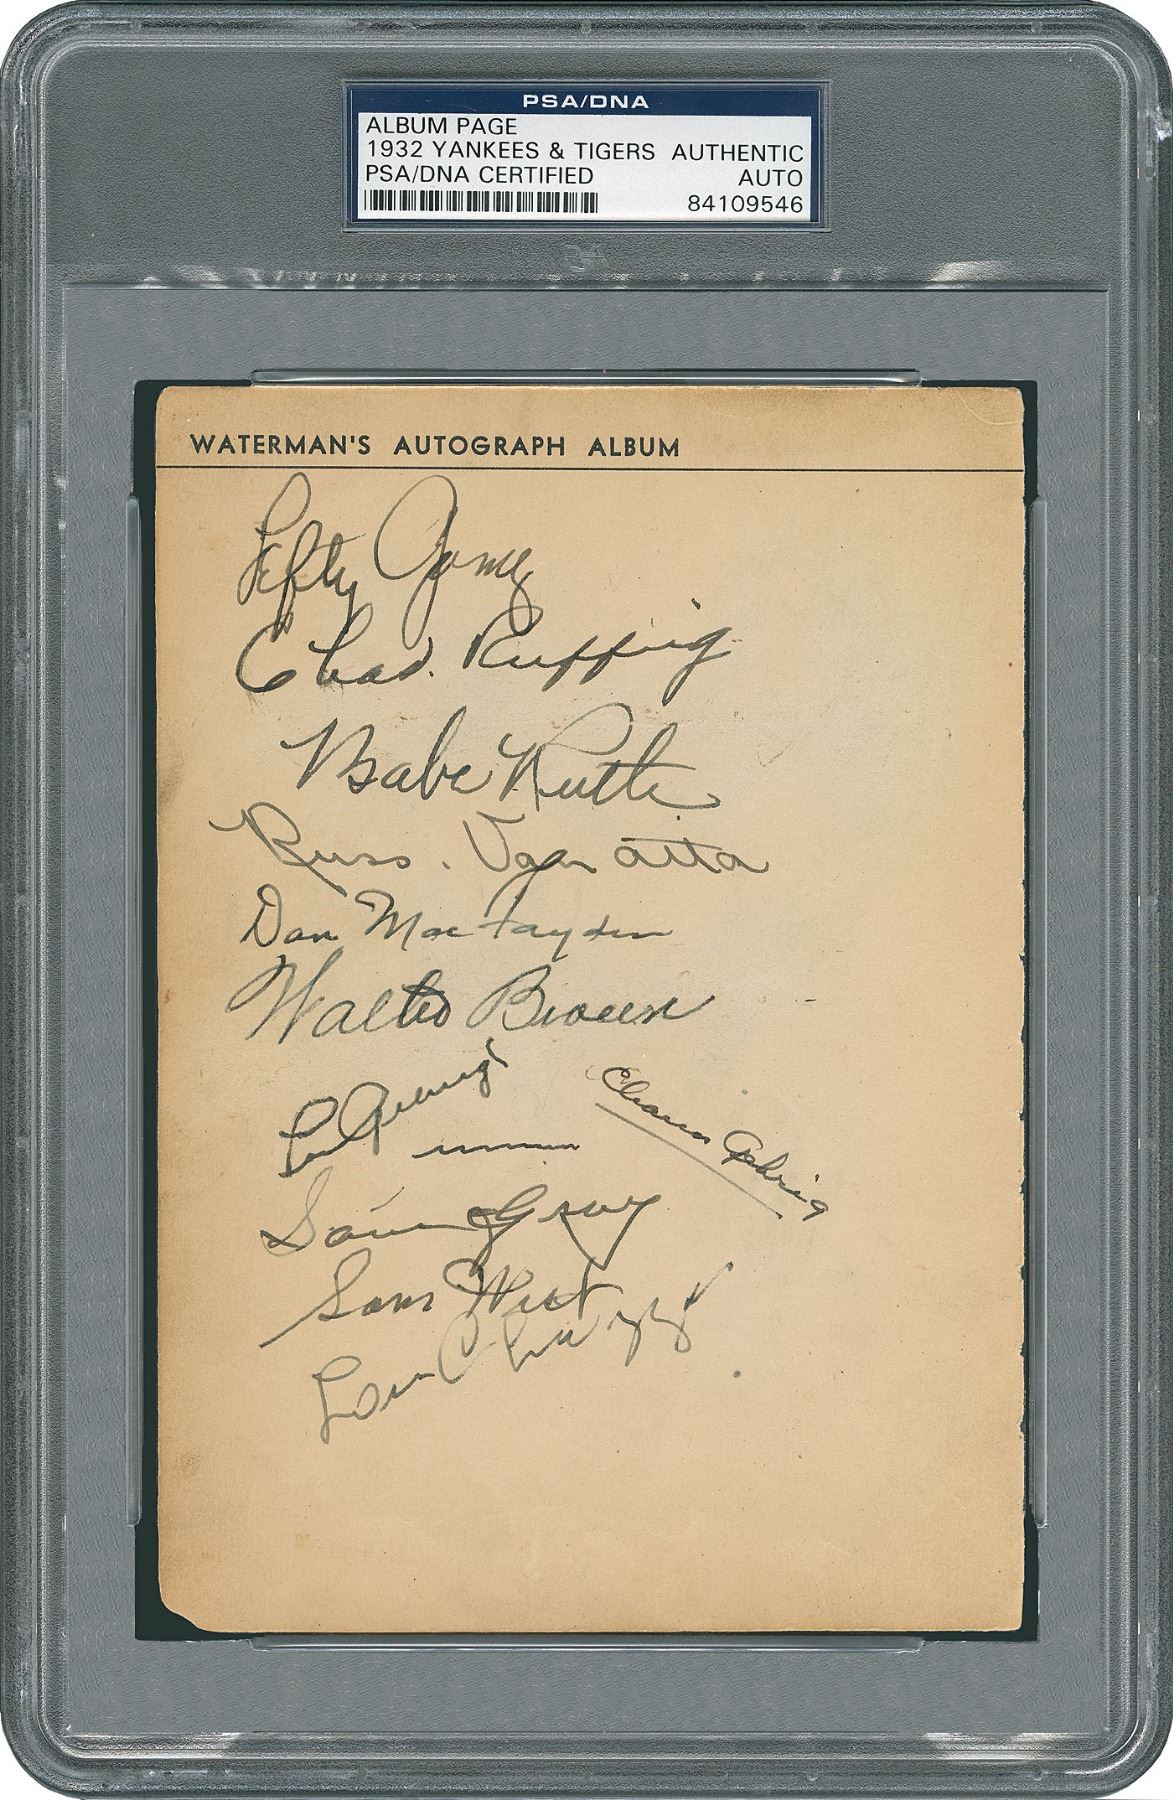 PSA/DNA
ALBUM PAGE
1932 YANKEES & TIGERS AUTHENTIC
PSA/DNA CERTIFIED AUTO
84109546
WATERMAN'S AUTOGRAPH ALBUM
Lefty Gomez
Chas. Ruffing
Babe Ruth
Russ. Van atta
Dan MacFayden
Walter Brown
Lou Gehrig
Eleanor Gehrig
Sam Gray
Sam West
Lou